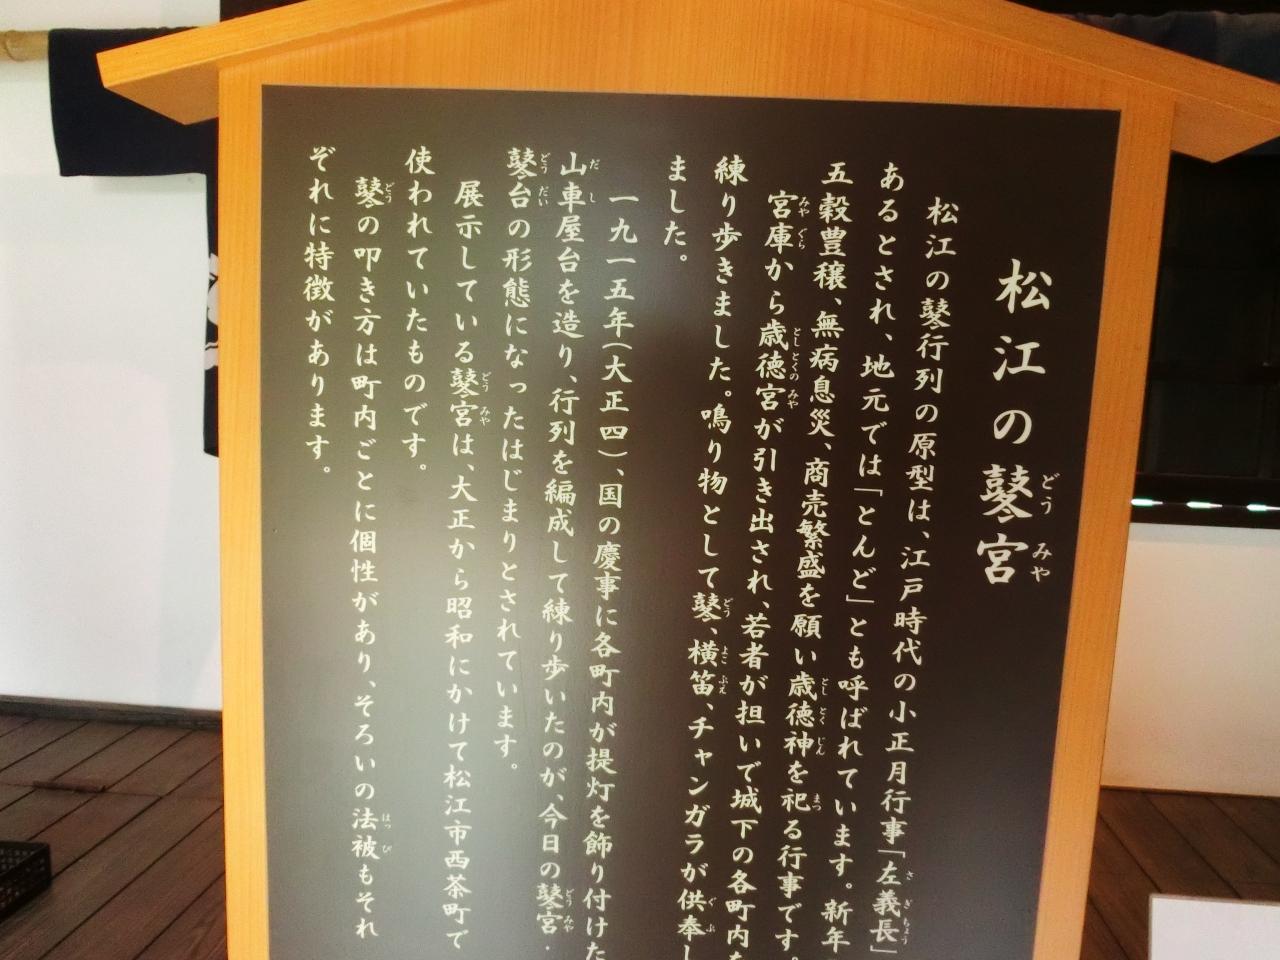 松江の鼕宮
どう みや
松江の鼕行列の原型は、江戸時代の小正月行事「左義長」
さぎちょう
あるとされ、地元では「とんど」とも呼ばれています。新年
五穀豊穣、無病息災、商売繁盛を願い歳徳神を祀る行事です。
としとくじん まつ
宮庫から歳徳宮が引き出され、若者が担いで城下の各町内を
みやぐら としとくのみや
練り歩きました。鳴り物として鼕、横笛、チャンガラが供奉し
どう よこぶえ ぐぶ
ました。
一九一五年(大正四)、国の慶事に各町内が提灯を飾り付けた
山車屋台を造り、行列を編成して練り歩いたのが、今日の鼕宮・
だし どうみや
鼕台の形態になったはじまりとされています。
どうだい
展示している鼕宮は、大正から昭和にかけて松江市西茶町で
どうみや
使われていたものです。
鼕の叩き方は町内ごとに個性があり、そろいの法被もそれ
どう はっぴ
ぞれに特徴があります。